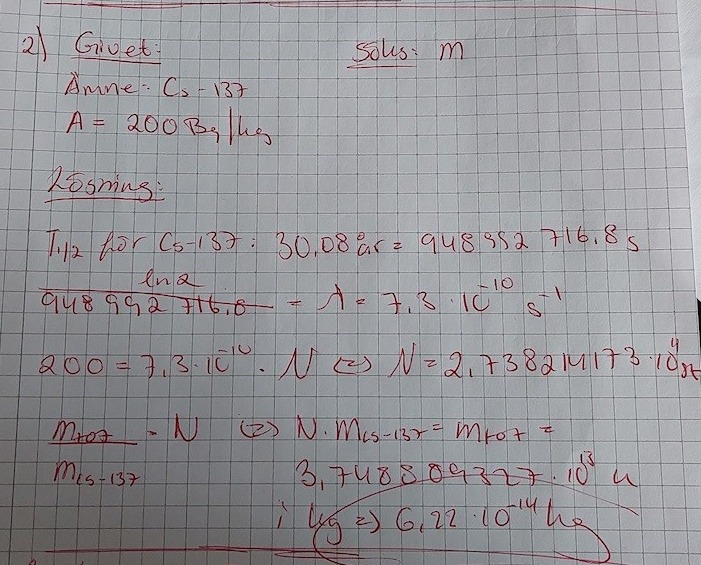 2) Givet: Söks: m
Ämne: Cs-137
A = 200 Bq/kg
Lösning:
T1/2 för Cs-137: 30,08 år = 948 992 716,8 s
ln2 / 948 992 716,8 = λ = 7,3 · 10^-10 s^-1
200 = 7,3 · 10^-10 · N <=> N = 2,738214173 · 10^11 st
mtot / mCs-137 = N <=> N · mCs-137 = mtot =
3,748809327 · 10^13 u
i kg => 6,22 · 10^-14 kg